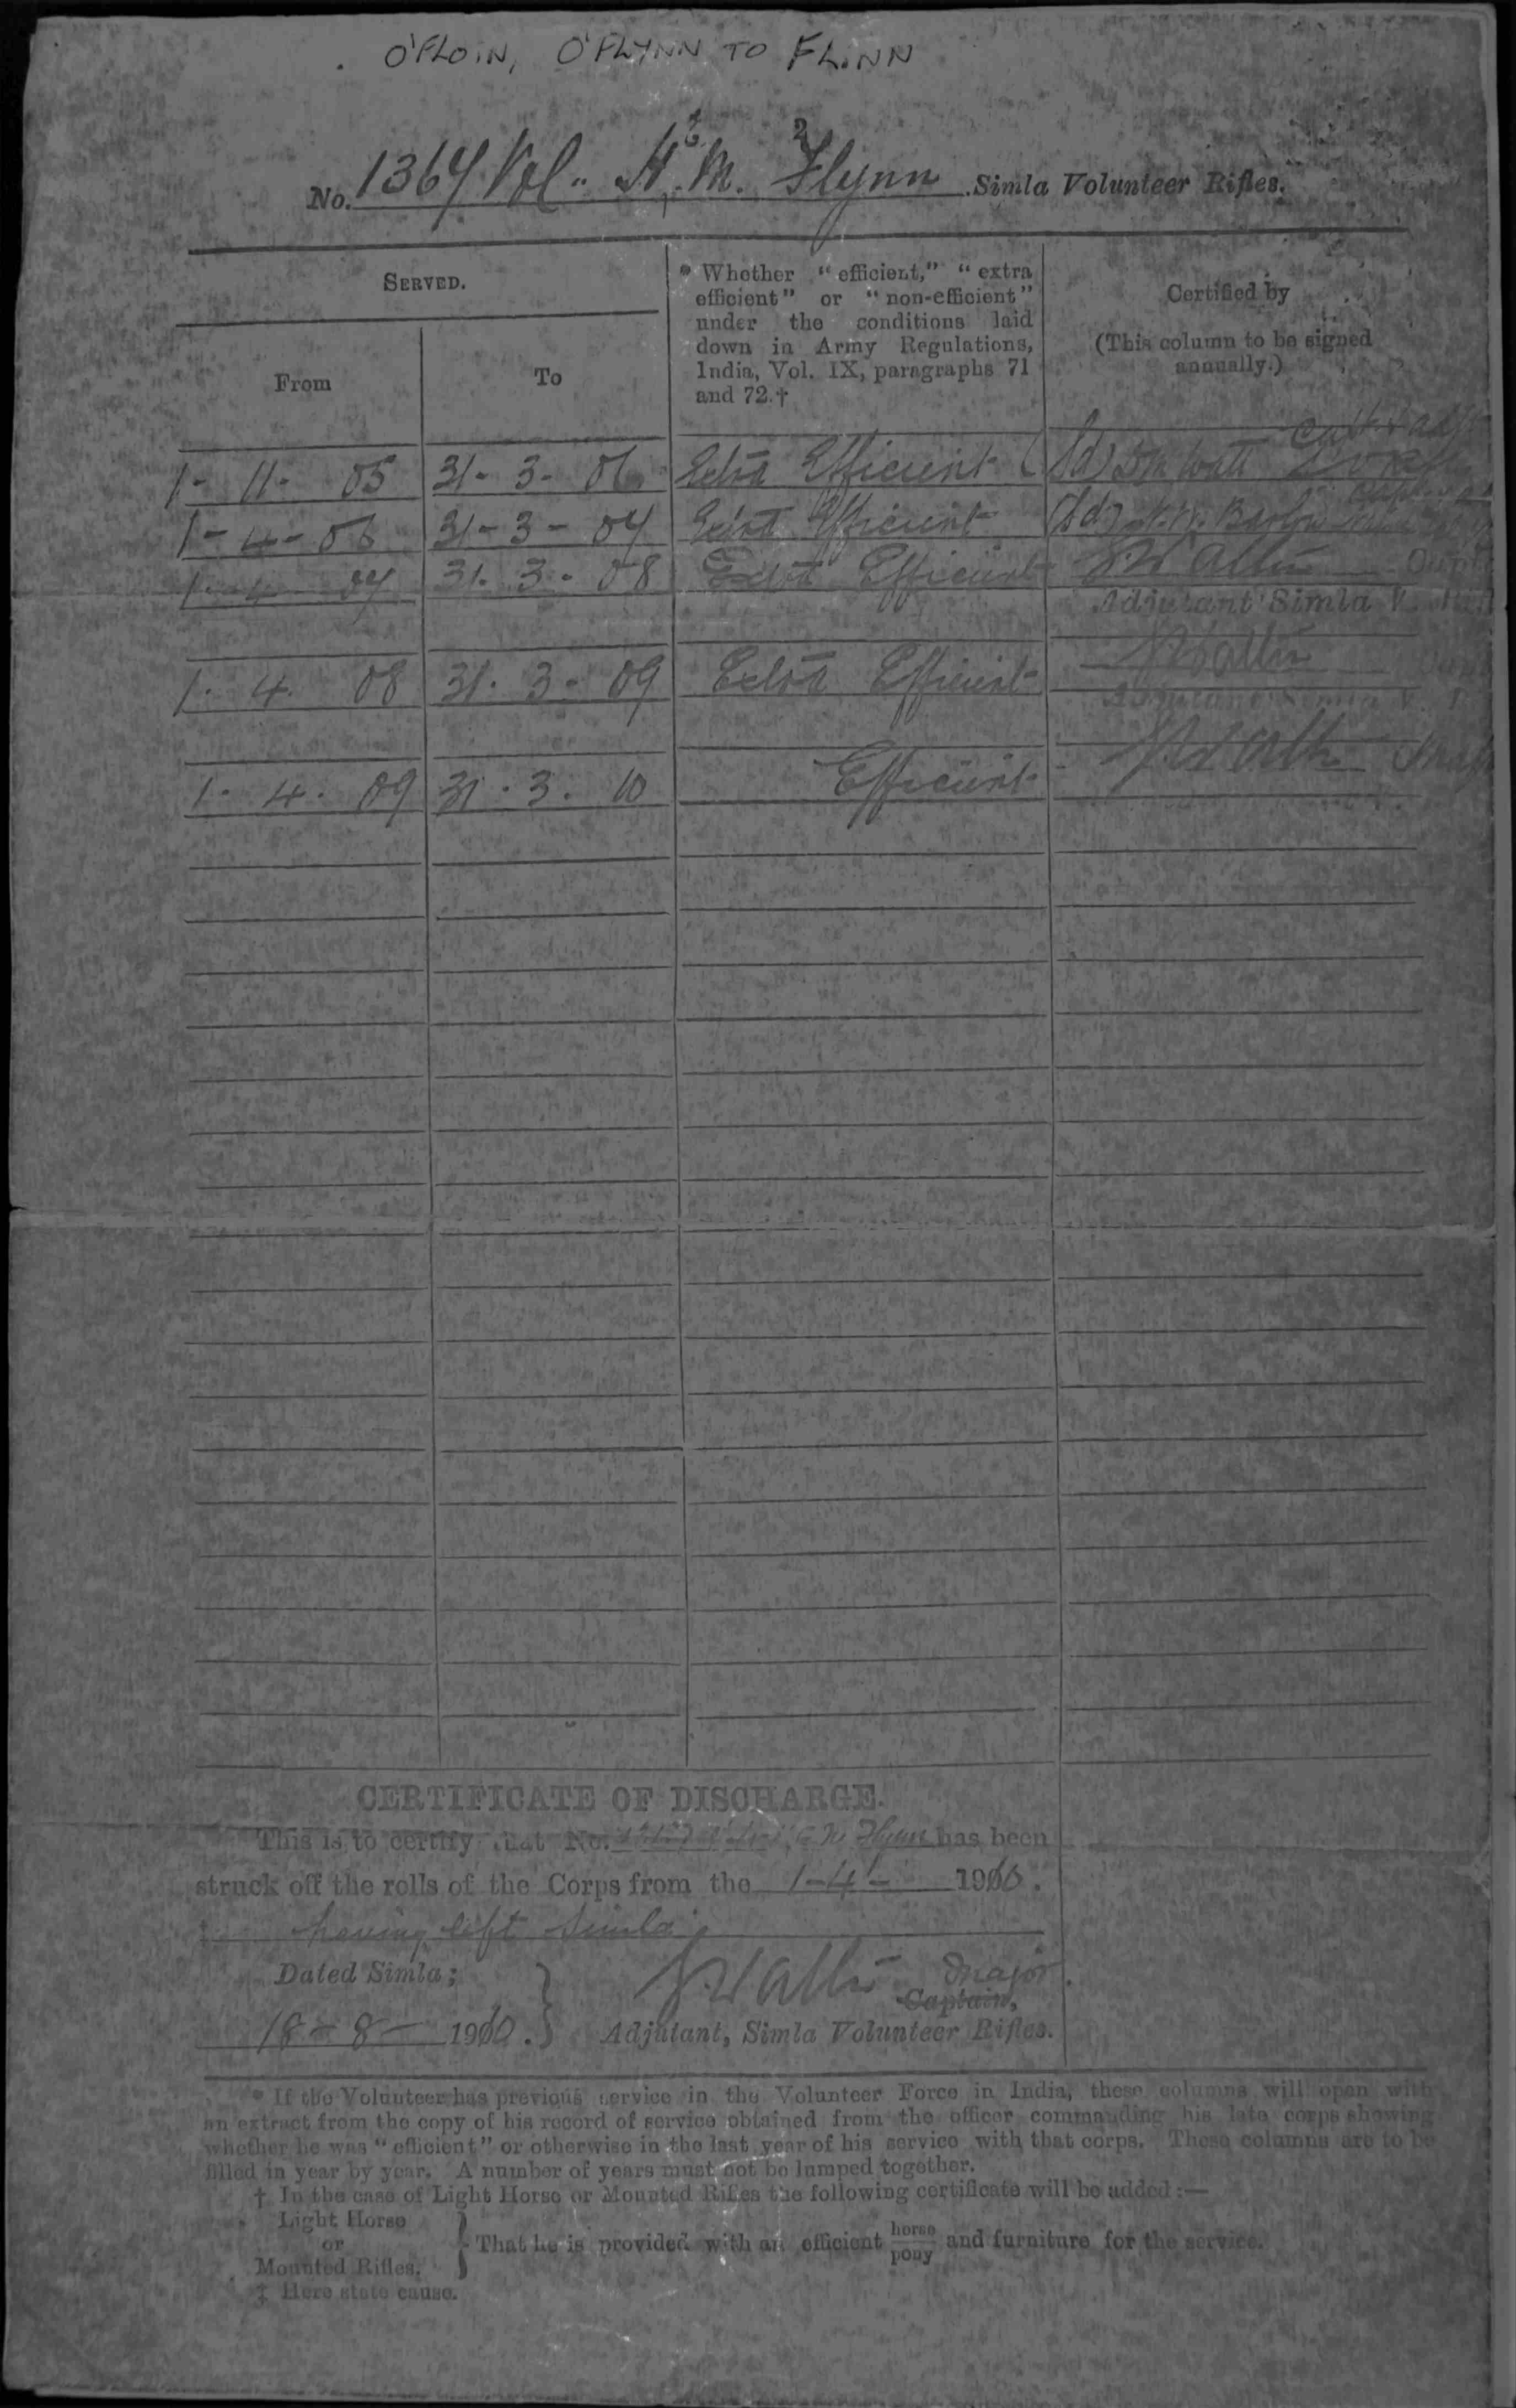 O'FLOIN, O'FLYNN TO FLINN
No. 1367 Vol. H. M. Flynn Simla Volunteer Rifles.
SERVED.
From
To
* Whether "efficient," "extra
efficient" or "non-efficient"
under the conditions laid
down in Army Regulations,
India, Vol. IX, paragraphs 71
and 72.†
Certified by
(This column to be signed
annually.)
1- 11- 05 31- 3- 06 Extra Efficient (Sd) Watt
1- 4- 06 31- 3- 07 Extra Efficient (Sd)
1- 4 07 31. 3- 08 Extra Efficient
Adjutant Simla V.
1. 4. 08 31. 3- 09 Extra Efficient
Adjutant Simla V.
1. 4. 09 31. 3. 10 Efficient
CERTIFICATE OF DISCHARGE.
This is to certify that No. Flynn has been
struck off the rolls of the Corps from the 1-4- 1910.
‡ having left Simla
Dated Simla;
Major
Captain,
18-8- 1910. Adjutant, Simla Volunteer Rifles.
* If the Volunteer has previous service in the Volunteer Force in India, these columns will open with
an extract from the copy of his record of service obtained from the officer commanding his late corps showing
whether he was "efficient" or otherwise in the last year of his service with that corps. These columns are to be
filled in year by year. A number of years must not be lumped together.
† In the case of Light Horse or Mounted Rifles the following certificate will be added :—
Light Horse
or
Mounted Rifles.
That he is provided with an efficient horse
pony and furniture for the service.
‡ Here state cause.